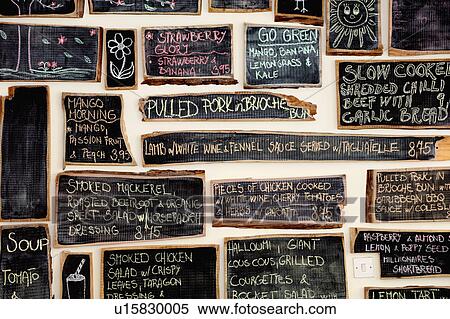 STRAWBERRY
GLORY
STRAWBERRY &
BANANA 3.95
GO GREEN
MANGO, BANANA,
LEMONGRASS &
KALE
SLOW COOKED
SHREDDED CHILLI
BEEF WITH
GARLIC BREAD
MANGO
MORNING
MANGO,
PASSION FRUIT
& PEACH 3.95
PULLED PORK IN BRIOCHE
BUN
LAMB W/ WHITE WINE & FENNEL SAUCE SERVED W/ TAGLIATELLE 8.45
SMOKED MACKEREL
ROASTED BEETROOT & ORGANIC
SPELT SALAD W/ HORSERADISH
DRESSING 8.45
PIECES OF CHICKEN COOKED
W/ WHITE WINE CHERRY TOMATOES
8.45
PULLED PORK IN
BRIOCHE BUN WITH
CARIBBEAN BBQ
SAUCE W/ COLES
SOUP
TOMATO
SMOKED CHICKEN
SALAD W/ CRISPY
LEAVES, TARAGON
DRESSING &
HALLOUMI GIANT
COUS COUS, GRILLED
COURGETTES &
ROCKET SALAD
RASPBERRY & ALMOND S
LEMON & POPPY SEED
MILLIONAIRES
SHORTBREAD
LEMON TART
u15830005 www.fotosearch.com